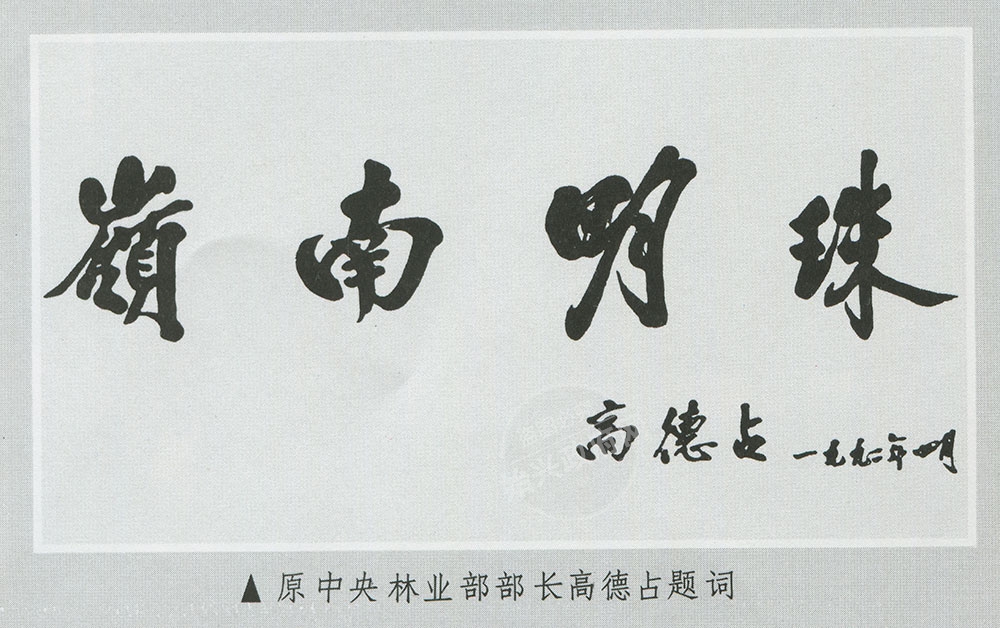 嶺南明珠
高德占 一九九二年四月
▲原中央林业部部长高德占题词